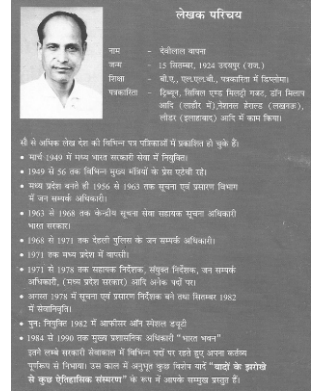 लेखक परिचय
नाम - देवीलाल बापना
जन्म - 15 सितम्बर, 1924 उदयपुर (राज.)
शिक्षा - बी.ए., एल.एल.बी., पत्रकारिता में डिप्लोमा।
पत्रकारिता - ट्रिब्यून, सिविल एण्ड मिलट्री गजट, डॉन मिलाप
आदि (लाहौर में), नेशनल हेराल्ड (लखनऊ),
लीडर (इलाहाबाद) आदि में काम किया।
सौ से अधिक लेख देश की विभिन्न पत्र पत्रिकाओं में प्रकाशित हो चुके हैं।
• मार्च 1949 में मध्य भारत सरकारी सेवा में नियुक्ति।
• 1949 से 56 तक विभिन्न मुख्य मंत्रियों के प्रेस एटेची रहे।
• मध्य प्रदेश बनते ही 1956 से 1963 तक सूचना एवं प्रसारण विभाग
में जन सम्पर्क अधिकारी।
• 1963 से 1968 तक केन्द्रीय सूचना सेवा सहायक सूचना अधिकारी
भारत सरकार।
• 1968 से 1971 तक देहली पुलिस के जन सम्पर्क अधिकारी।
• 1971 तक मध्य प्रदेश में वापसी।
• 1971 से 1978 तक सहायक निर्देशक, संयुक्त निर्देशक, जन सम्पर्क
अधिकारी, (मध्य प्रदेश सरकार) आदि अनेक पदों पर।
• अगस्त 1978 में सूचना एवं प्रसारण निर्देशक बने तथा सितम्बर 1982
में सेवानिवृति।
• पुन: नियुक्ति 1982 में आफीसर ऑन स्पेशल ड्यूटी
• 1984 से 1990 तक मुख्य प्रशासनिक अधिकारी "भारत भवन"
इतने लम्बे सरकारी सेवाकाल में विभिन्न पदों पर रहते हुए अपना कर्तव्य
पूर्णरूप से निभाया। उस काल में अनुभूत कुछ विशेष यादें "यादों के झरोखे
से कुछ ऐतिहासिक संस्मरण" के रूप में आपके सम्मुख प्रस्तुत हैं।